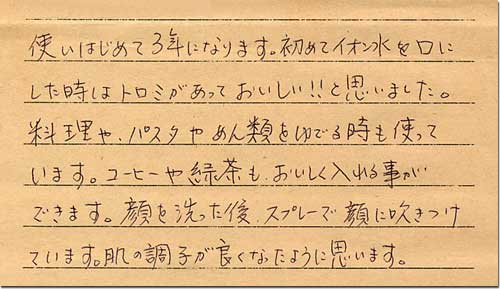 使いはじめて3年になります。初めてイオン水を口に
した時はトロミがあっておいしい!!と思いました。
料理や、パスタやめん類をゆでる時も使って
います。コーヒーや緑茶も、おいしく入れる事が
できます。顔を洗った後、スプレーで顔に吹きつけ
ています。肌の調子が良くなったように思います。